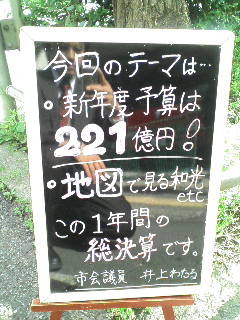 今回のテーマは…
・新年度予算は
221億円!
・地図で見る和光
etc
この1年間の
総決算です。
市会議員 井上わたる